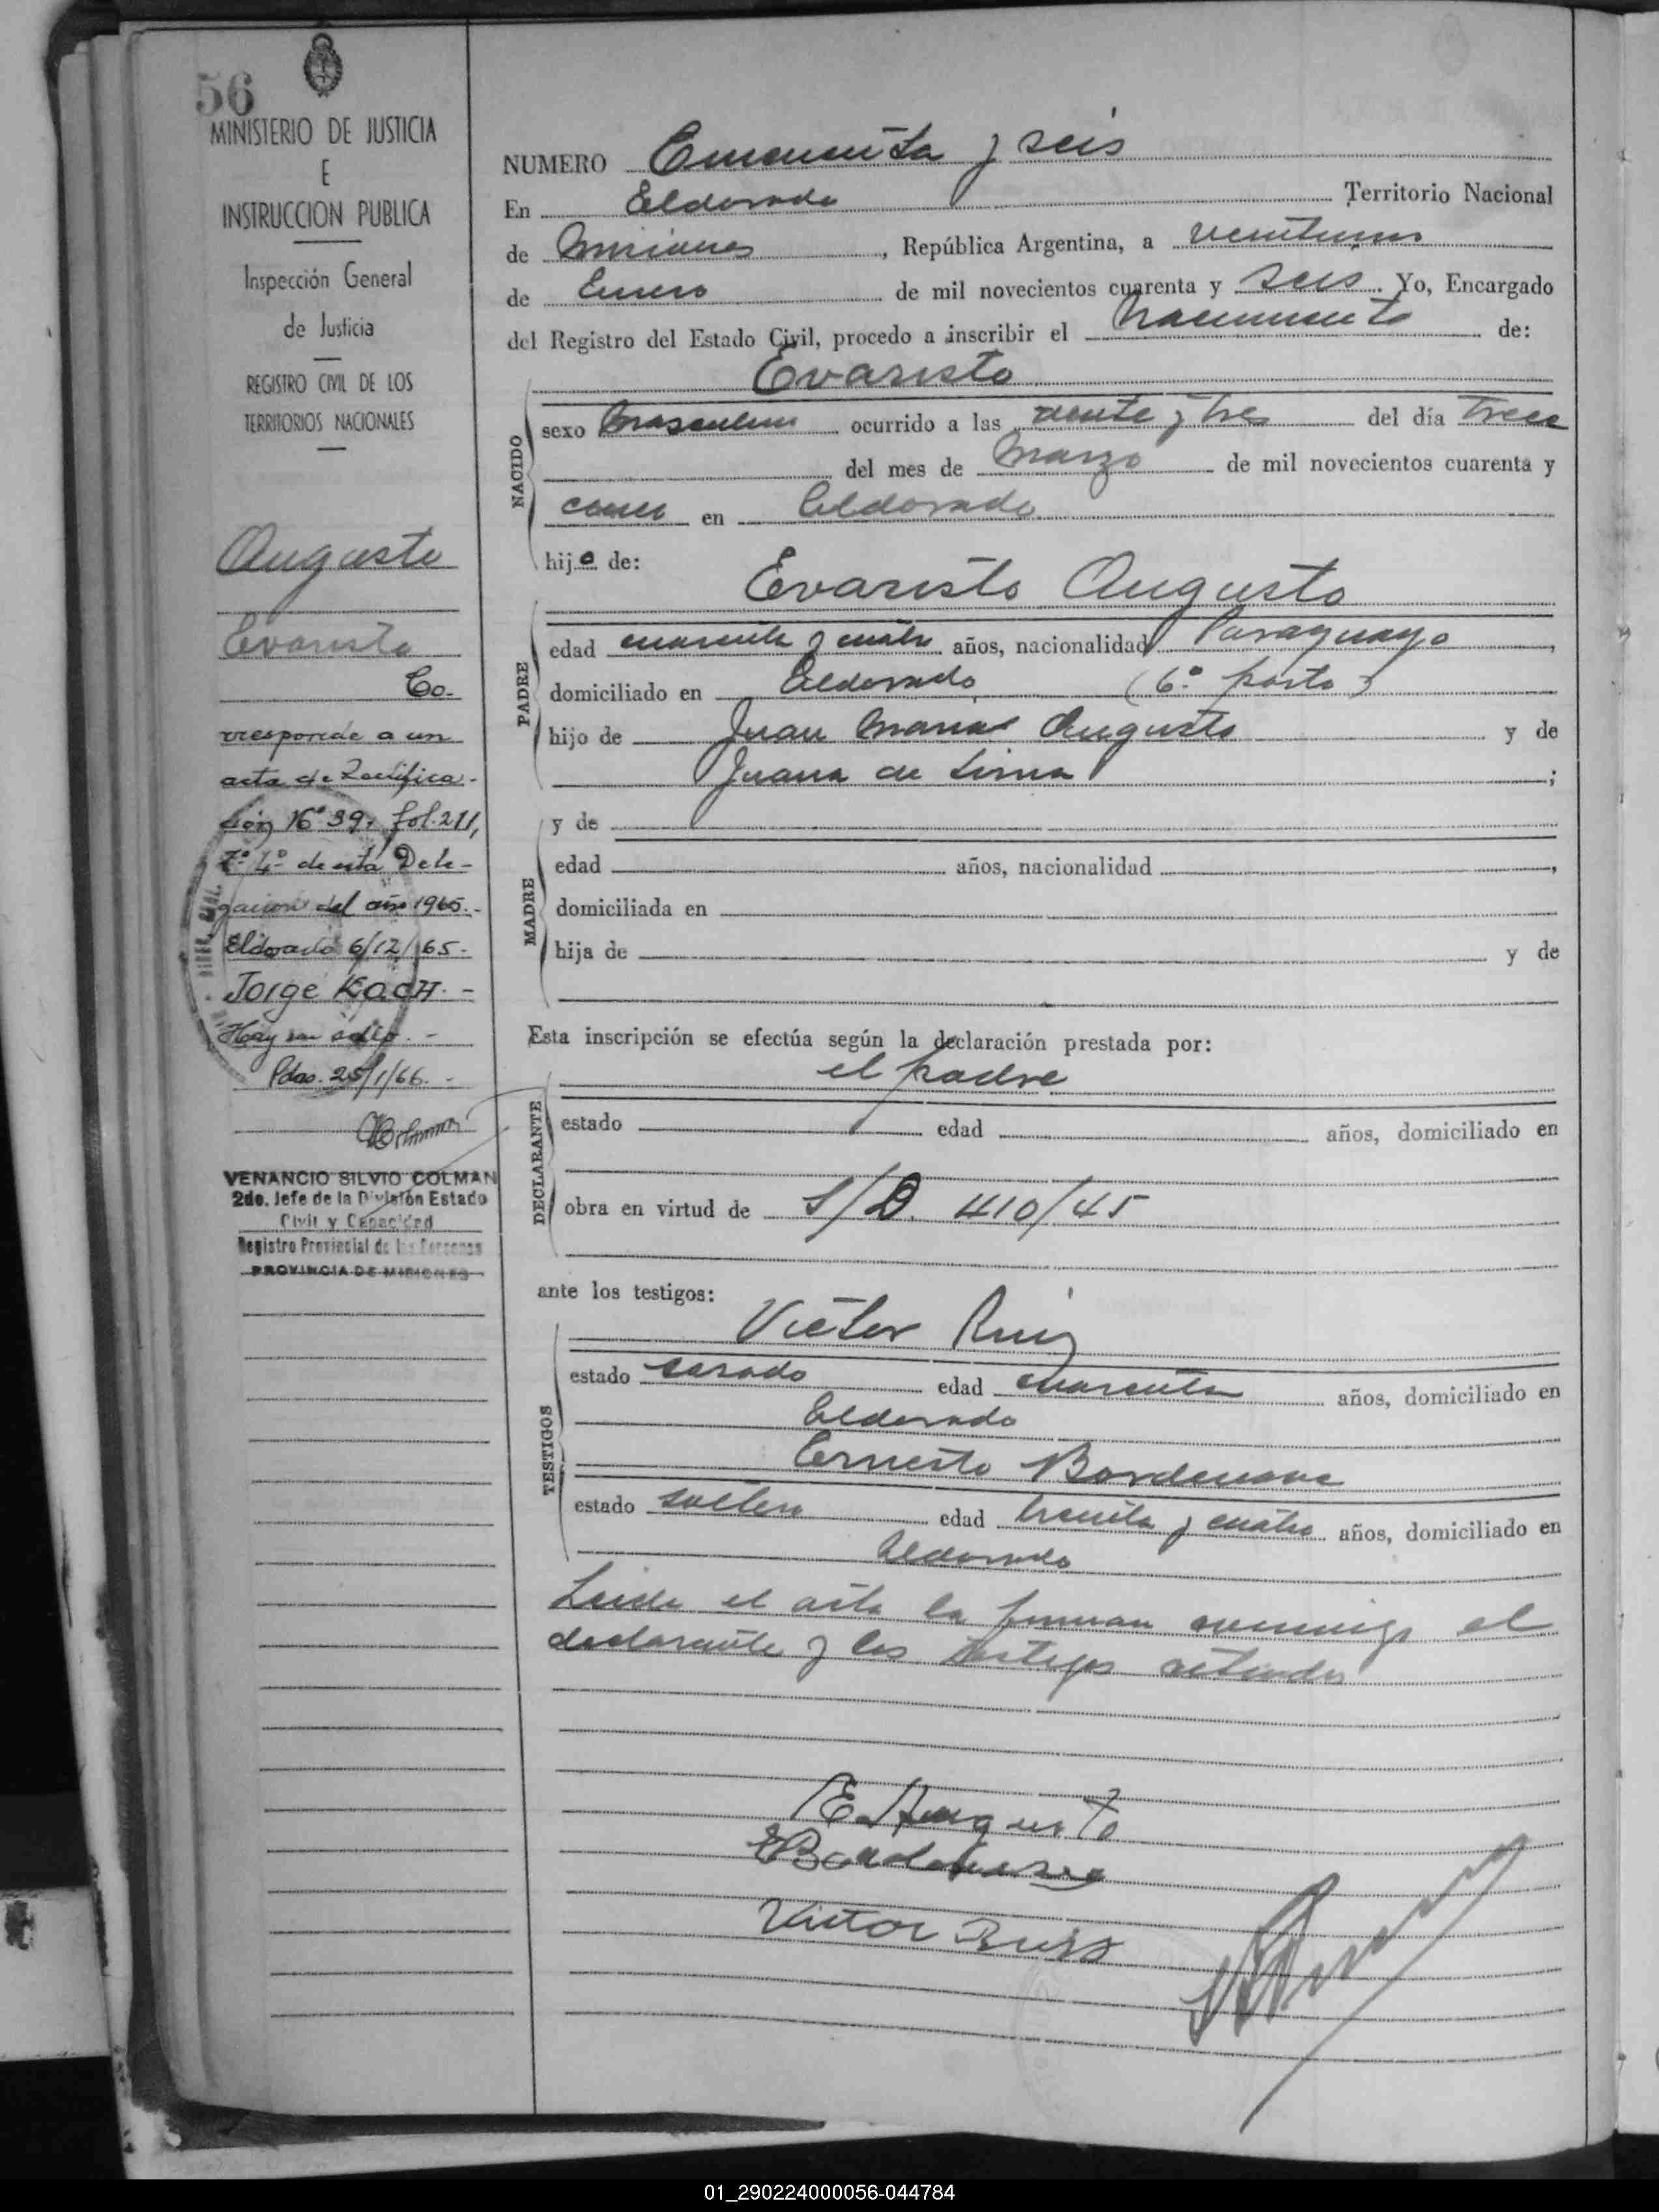 56
MINISTERIO DE JUSTICIA
E
INSTRUCCION PUBLICA
Inspección General
de Justicia
REGISTRO CIVIL DE LOS
TERRITORIOS NACIONALES
Augusto
Evaristo
Co-
rresponde a un
acta de Rectifica-
ción Nº 39, fol. 211,
Tº 4º de esta Dele-
gación del año 1965.-
Eldorado 6/12/65-
Jorge KOCH.-
Hay un sello.-
Pdas. 25/1/66.-
VENANCIO SILVIO COLMAN
2do. Jefe de la División Estado
Civil y Capacidad
Registro Provincial de las Personas
PROVINCIA DE MISIONES
NUMERO Cincuenta y seis
En Eldorado Territorio Nacional
de Misiones, República Argentina, a veintiuno
de Enero de mil novecientos cuarenta y seis. Yo, Encargado
del Registro del Estado Civil, procedo a inscribir el nacimiento de:
Evaristo
NACIDO
sexo masculino ocurrido a las veinte y tres del día trece
del mes de Marzo de mil novecientos cuarenta y
cinco en Eldorado
hijo de:
Evaristo Augusto
PADRE
edad cuarenta y cuatro años, nacionalidad Paraguayo,
domiciliado en Eldorado (6º. parto)
hijo de Juan Augusto y de
Juana de Lima;
y de
MADRE
edad años, nacionalidad,
domiciliada en
hija de y de
Esta inscripción se efectúa según la declaración prestada por:
el padre
DECLARANTE
estado edad años, domiciliado en
obra en virtud de S/D. 410/45
ante los testigos:
Victor Ruiz
TESTIGOS
estado casado edad cuarenta años, domiciliado en
Eldorado
Ernesto Bordenave
estado soltero edad treinta y cuatro años, domiciliado en
Eldorado
Leida el acta la firman conmigo el
declarante y los testigos citados
E. Augusto
EBordenave
Victor Ruiz
01_290224000056-044784